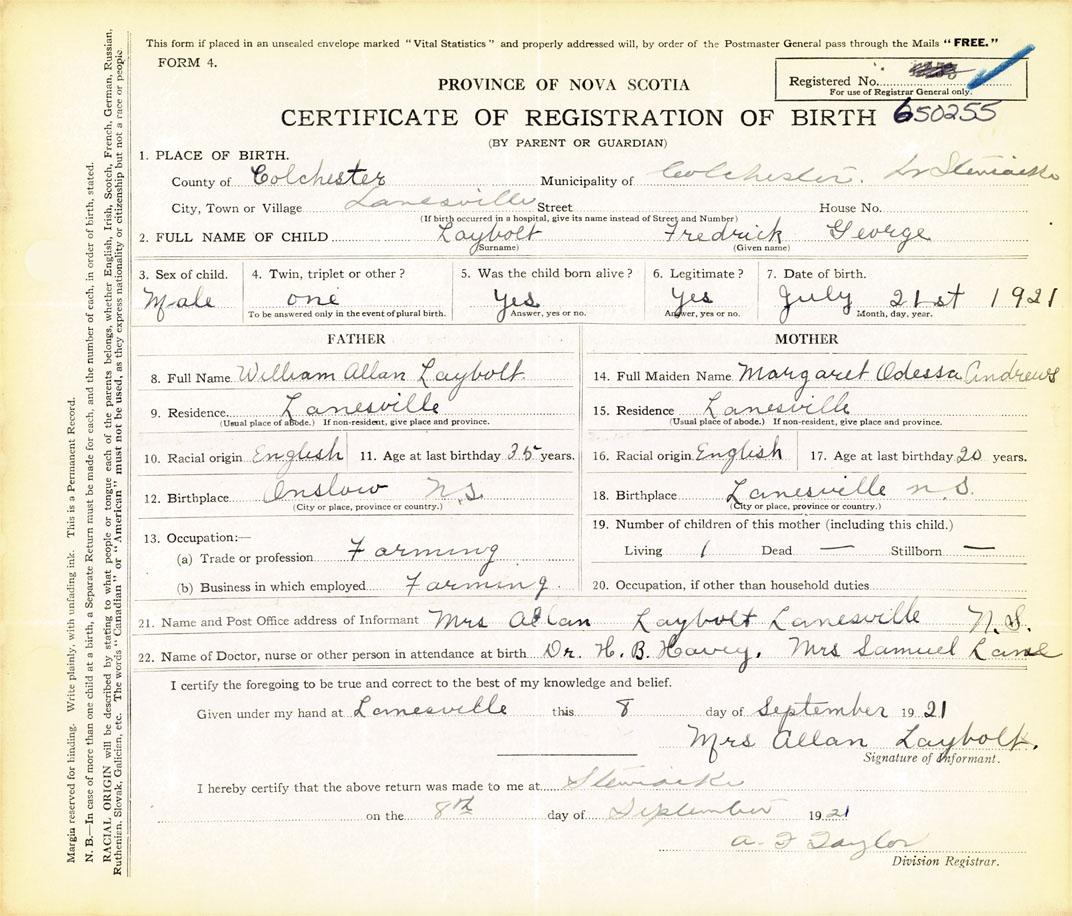 This form if placed in an unsealed envelope marked "Vital Statistics" and properly addressed will, by order of the Postmaster General pass through the Mails "FREE."
FORM 4.
Registered No.
For use of Registrar General only.
PROVINCE OF NOVA SCOTIA
CERTIFICATE OF REGISTRATION OF BIRTH 650255
(BY PARENT OR GUARDIAN)
1. PLACE OF BIRTH.
County of Colchester Municipality of Colchester. Lr Stewiacke
City, Town or Village Lanesville Street House No.
(If birth occurred in a hospital, give its name instead of Street and Number)
2. FULL NAME OF CHILD Laybolt Fredrick George
(Surname) (Given name)
3. Sex of child. 4. Twin, triplet or other? 5. Was the child born alive? 6. Legitimate? 7. Date of birth.
Male one Yes Yes July 21st 1921
To be answered only in the event of plural birth. Answer, yes or no. Answer, yes or no. Month, day, year.
FATHER
8. Full Name William Allan Laybolt.
9. Residence. Lanesville
(Usual place of abode.) If non-resident, give place and province.
10. Racial origin English 11. Age at last birthday 35 years.
12. Birthplace Onslow N.S.
(City or place, province or country.)
13. Occupation:—
(a) Trade or profession Farming
(b) Business in which employed Farming.
MOTHER
14. Full Maiden Name Margaret Odessa Andrews
15. Residence Lanesville
(Usual place of abode.) If non-resident, give place and province.
16. Racial origin English 17. Age at last birthday 20 years.
18. Birthplace Lanesville n.S.
(City or place, province or country.)
19. Number of children of this mother (including this child.)
Living 1 Dead — Stillborn —
20. Occupation, if other than household duties
21. Name and Post Office address of Informant Mrs Allan Laybolt Lanesville N.S.
22. Name of Doctor, nurse or other person in attendance at birth Dr. H. B. Havey. Mrs Samuel Lane
I certify the foregoing to be true and correct to the best of my knowledge and belief.
Given under my hand at Lanesville this 8 day of September 1921
Mrs Allan Laybolt.
Signature of Informant.
I hereby certify that the above return was made to me at Stewiacke
on the 8th day of September 1921
A. F Taylor
Division Registrar.
Margin reserved for binding. Write plainly, with unfading ink. This is a Permanent Record.
N. B.—In case of more than one child at a birth, a Separate Return must be made for each, and the number of each, in order of birth, stated.
RACIAL ORIGIN will be described by stating to what people or tongue each of the parents belongs, whether English, Irish, Scotch, French, German, Russian,
Ruthenian, Slovak, Galician, etc. The words "Canadian" or "American" must not be used, as they express nationality or citizenship but not a race or people